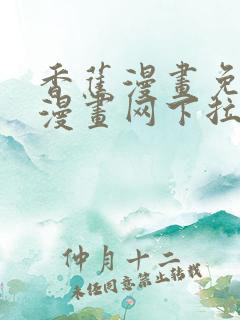 香蕉漫畫免
漫畫网下拉
仲月十二
未经同意禁止转载